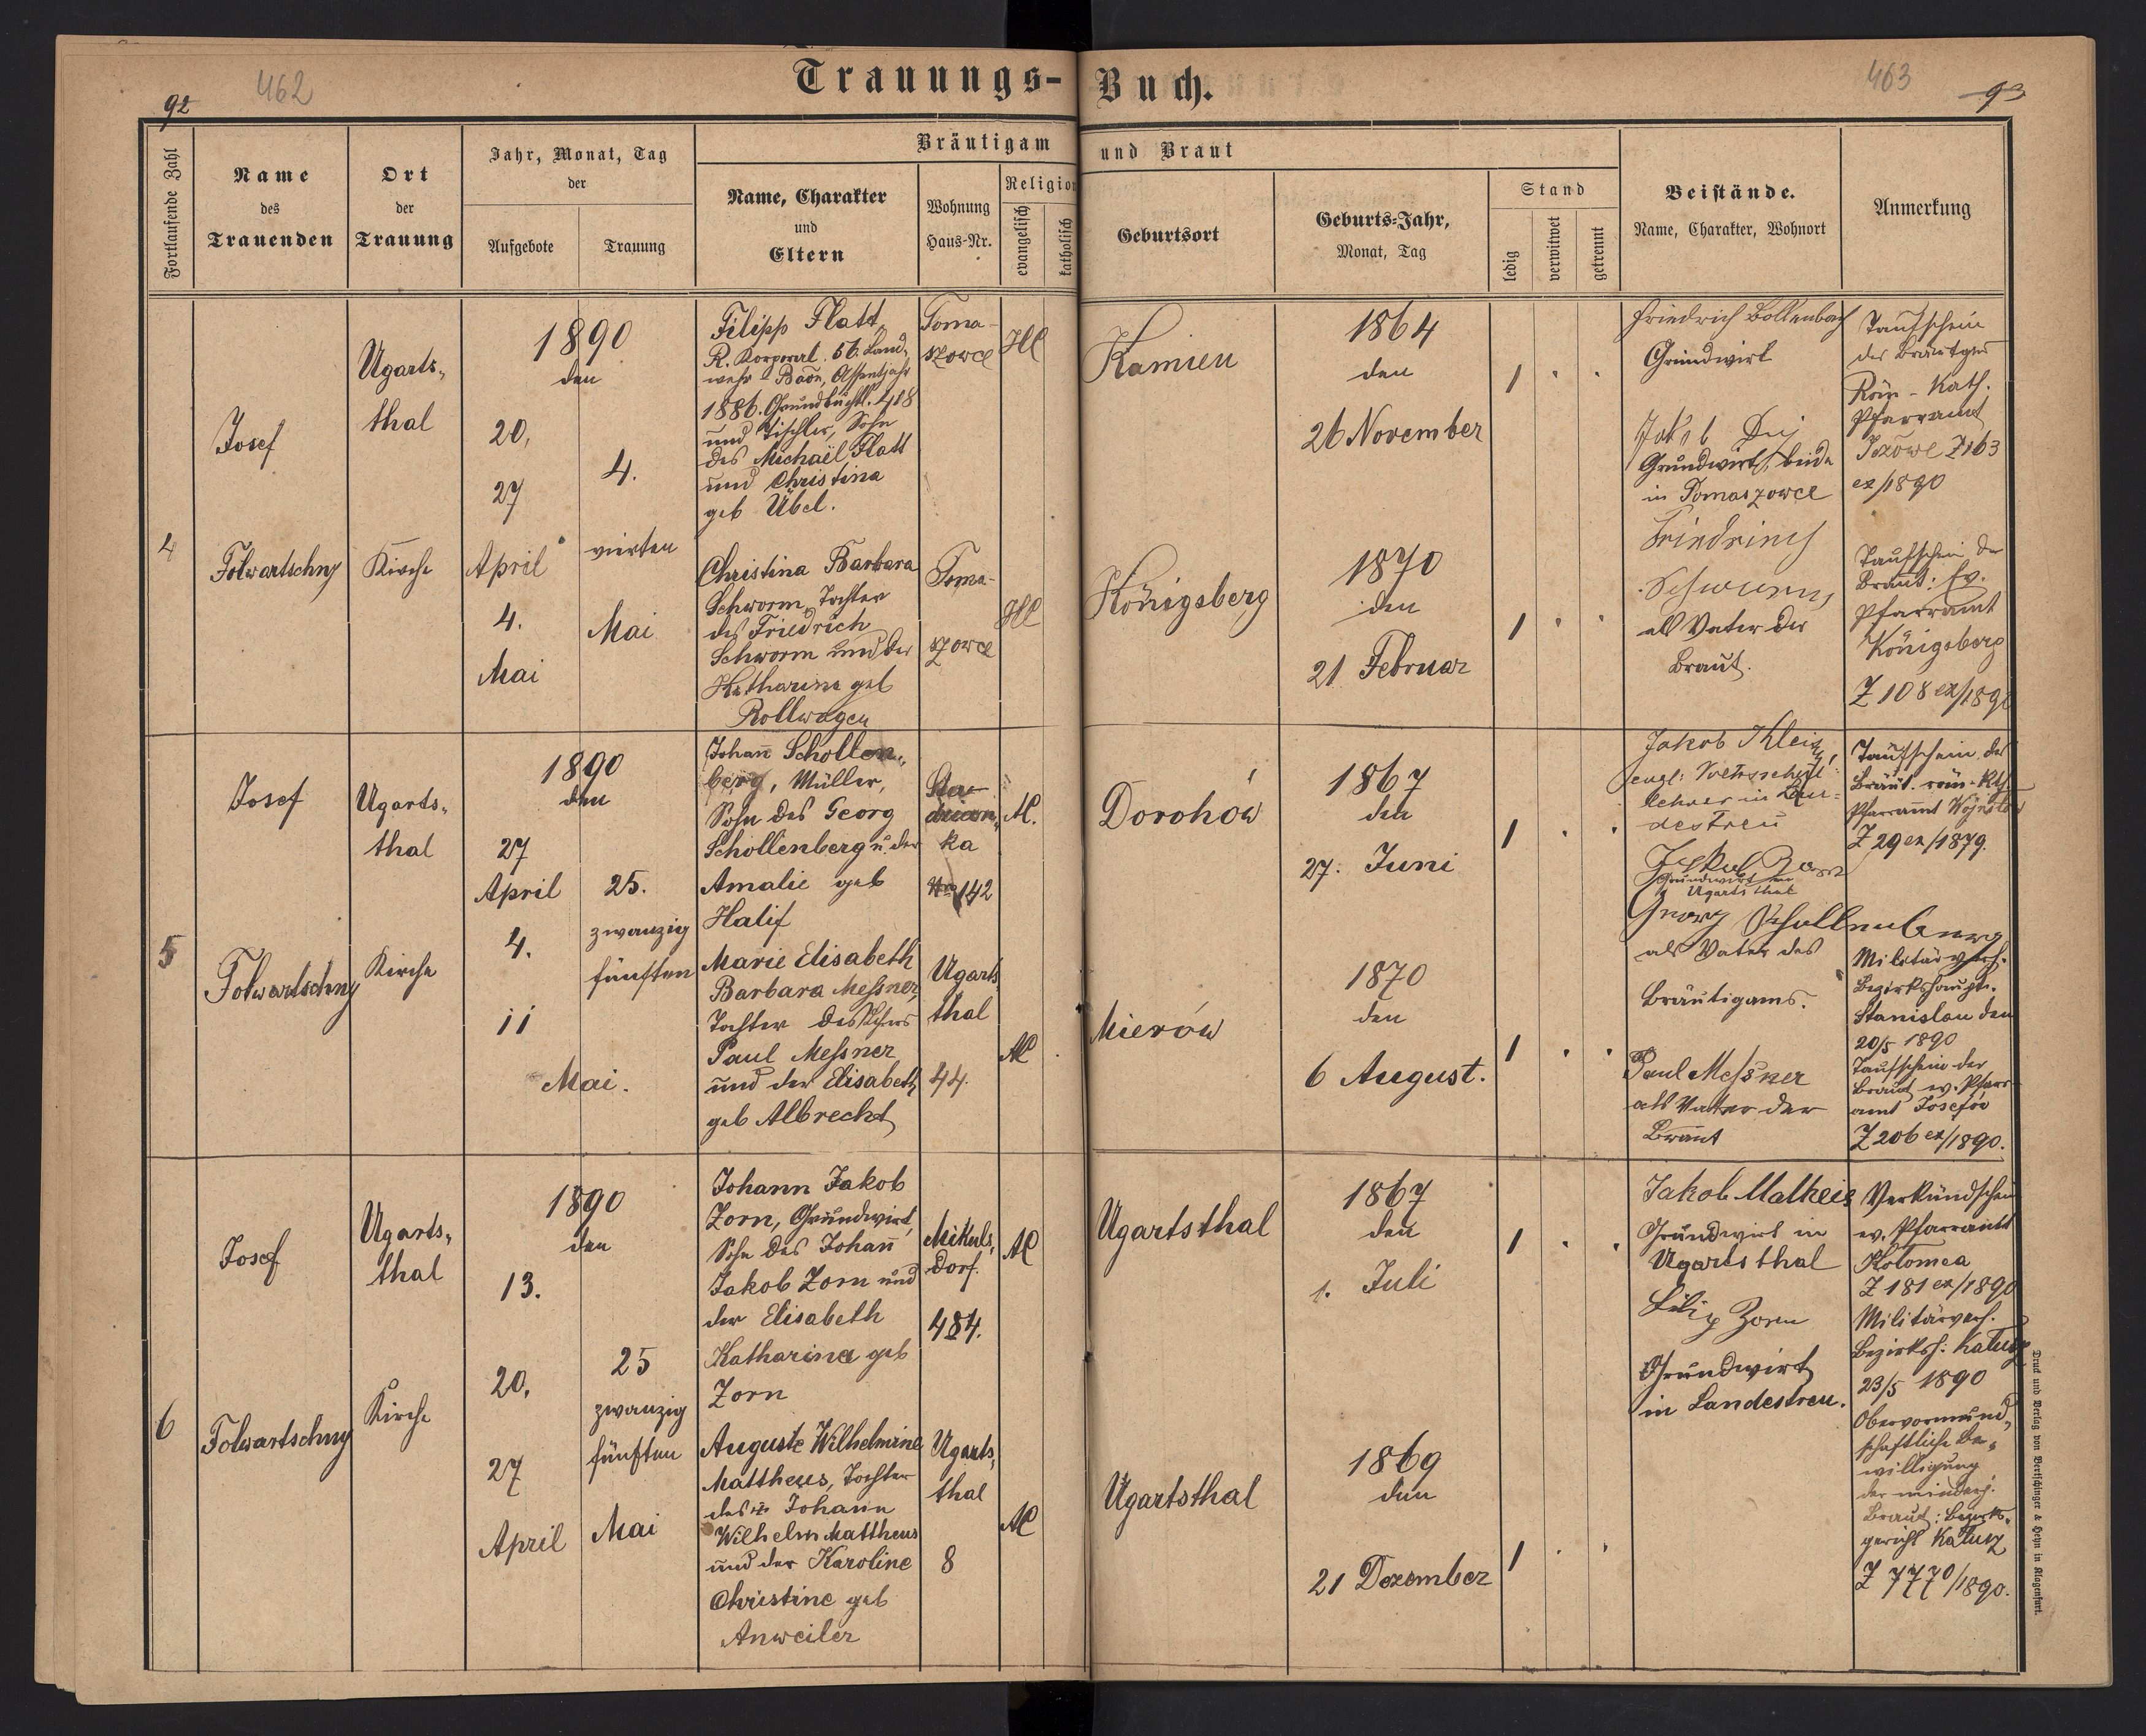 462
92
Trauungs-
Buch.
463
93
Fortlaufende Zahl
Name
des
Trauenden
Ort
der
Trauung
Jahr, Monat, Tag
der
Aufgebote
Trauung
Bräutigam
und Braut
Name, Charakter
und
Eltern
Wohnung
Haus-Nr.
Religion
evangelisch
katholisch
Geburtsort
Geburts-Jahr,
Monat, Tag
Stand
ledig
verwitwet
getrennt
Beistände.
Name, Charakter, Wohnort
Anmerkung
4
Josef
Folwartschny
Ugarts-
thal
Kirche
1890
den
20,
27
April
4.
Mai
4.
vierten
Mai
Filipp Platt,
R. Korporal. 56. Land-
wehr Baōn, Assentjahr
1886. Grundbuchbl. 418
und Tischler, Sohn
des Michael Platt
und Christina
geb Übel.
Toma-
szowce
HC
Kamien
1864
den
26 November
1
Friedrich Bollenbach
Grundwirt
Jakob
Grundwirt, beide
in Tomaszowce
Taufschein
des Bräutgms
Röm-Kath.
Pfarramt
Z 163
ex/1890
Christina Barbara
Schworm, Tochter
des Friedrich
Schworm und der
Katharina geb
Rollwagen
Toma-
szowce
HC
Königsberg
1870
den
21 Februar
1
Friedrich
Schworm,
als Vater der
Braut.
Taufschein der
Braut: Ev.
Pfarramt
Königsberg
Z 108 ex/1890
5
Josef
Folwartschny
Ugarts-
thal
Kirche
1890
den
27
April
4.
11
Mai.
25.
zwanzig
fünften
Johann Schollen-
berg, Müller,
Sohn des Georg
Schollenberg u. der
Amalie geb
Halif
ka
142
AC.
Dorohów
1867
den
27. Juni
1
Jakob Klein,
evgl: Volksschul-
lehrer in Lan-
destreu
Grundwirt in
Ugartsthal
Georg Schollenberg
als Vater des
Bräutigams.
Taufschein des
Bräut. röm-Kth.
Pfarramt
Z 29 ex/1879.
Militärverh.
Bezirkshauptm.
Stanislau den
20/5 1890
Marie Elisabeth
Barbara Messner,
Tochter des Lehrers
Paul Messner
und der Elisabeth
geb Albrecht
Ugarts
thal
44.
AC
Mierów
1870
den
6 August.
1
Paul Messner
als Vater der
Braut
Taufschein der
Braut ev. Pfarr-
amt Josefów
Z 206 ex/1890.
6
Josef
Folwartschny
Ugarts-
thal
Kirche
1890
den
13.
20.
27
April
25
zwanzig
fünften
Mai
Johann Jakob
Zorn, Grundwirt,
Sohn des Johann
Jakob Zorn und
der Elisabeth
Katharina geb
Zorn
Mikuls-
dorf.
484.
AC
Ugartsthal
1867
den
1. Juli
1
Jakob Matheis
Grundwirt in
Ugartsthal
Filip Zorn
Grundwirt
in Landestreu.
Verkündschein
ev. Pfarramts
Kolomea
Z 181 ex/1890
Militärverh.
Bezirksh: Kałusz
23/5 1890
Obervormund-
schaftliche Be-
willigung
der minderj.
Braut: Bezirks-
gericht Kałusz
Z 7770/1890.
Auguste Wilhelmine
Mattheus, Tochter
des † Johann
Wilhelm Mattheus
und der Karoline
Christine geb
Anweiler
Ugarts-
thal
8
AC
Ugartsthal
1869
den
21 Dezember
1
Druck und Verlag von Bertschinger & Heyn in Klagenfurt.